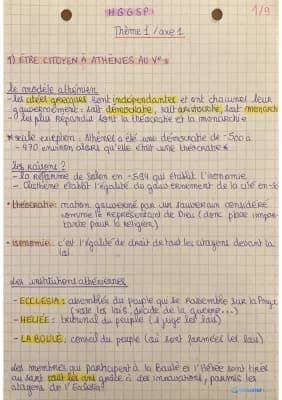 HGGSP:
1/9
Thème 1 / axe 1
1) ÊTRE CITOYEN À ATHÈNES AU Ve s
le modèle athénien
- les cités grecques sont indépendantes et ont chacunes leur
gouvernement : soit démocratie, soit aristocratie, soit monarchie
-> les plus répandus sont la théocratie et la monarchie
* seule exception : Athènes a été une démocratie de -500 à
-430 environ alors qu'elle était une théocratie *
les raisons ?
- la réforme de Solon en -594 qui établit l'isonomie
- Clisthène établit l'égalité du gouvernement de la cité en -50
• théocratie : nation gouverné par un souverain considéré
comme le représentant de Dieu (donc place impor-
tante pour la religion)
• isonomie : c'est l'égalité de droit de tout les citoyens devant la
loi
les institutions athéniennes
- ECCLESIA : assemblée du peuple qui se rassemble sur la Pnyx
(vote les lois, décide de la guerre...)
- HÉLIÉE : tribunal du peuple (il juge les lois)
- LA BOULÈ : conseil du peuple (où sont formées les lois)
les membres qui participent à la Boulè et l'Héliée sont tirés
au sort tout les ans grâce à des , parmis les
citoyens de l'Ecclésia